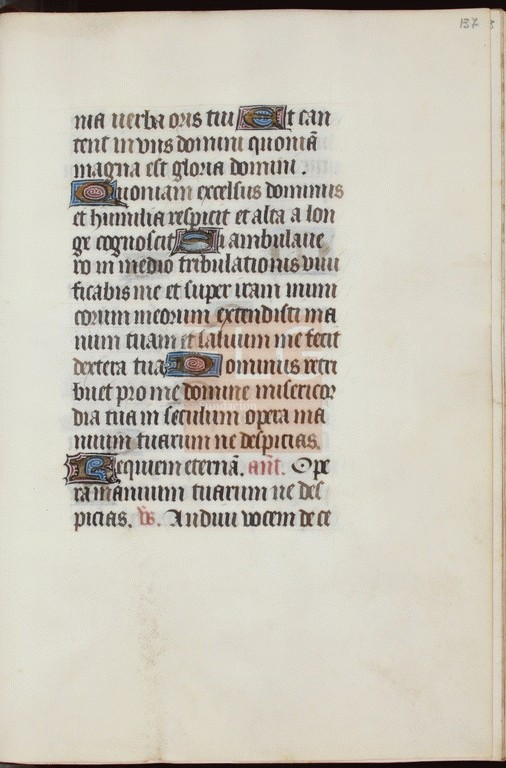 137
nia verba oris tui Et can
tent in viis domini quoniā
magna est gloria domini.
Quoniam excelsus dominus
et humilia respicit et alta a lon
ge cognoscit Si ambulave
ro in medio tribulationis vivi
ficabis me et super iram inimi
corum meorum extendisti ma
num tuam et salvum me fecit
dextera tua Dominus retri
buet pro me domine misericor
dia tua in seculum opera ma
nuum tuarum ne despicias.
Requiem eternā. añt. Ope
ra manuum tuarum ne des
picias. V̄s. Audivi vocem de ce